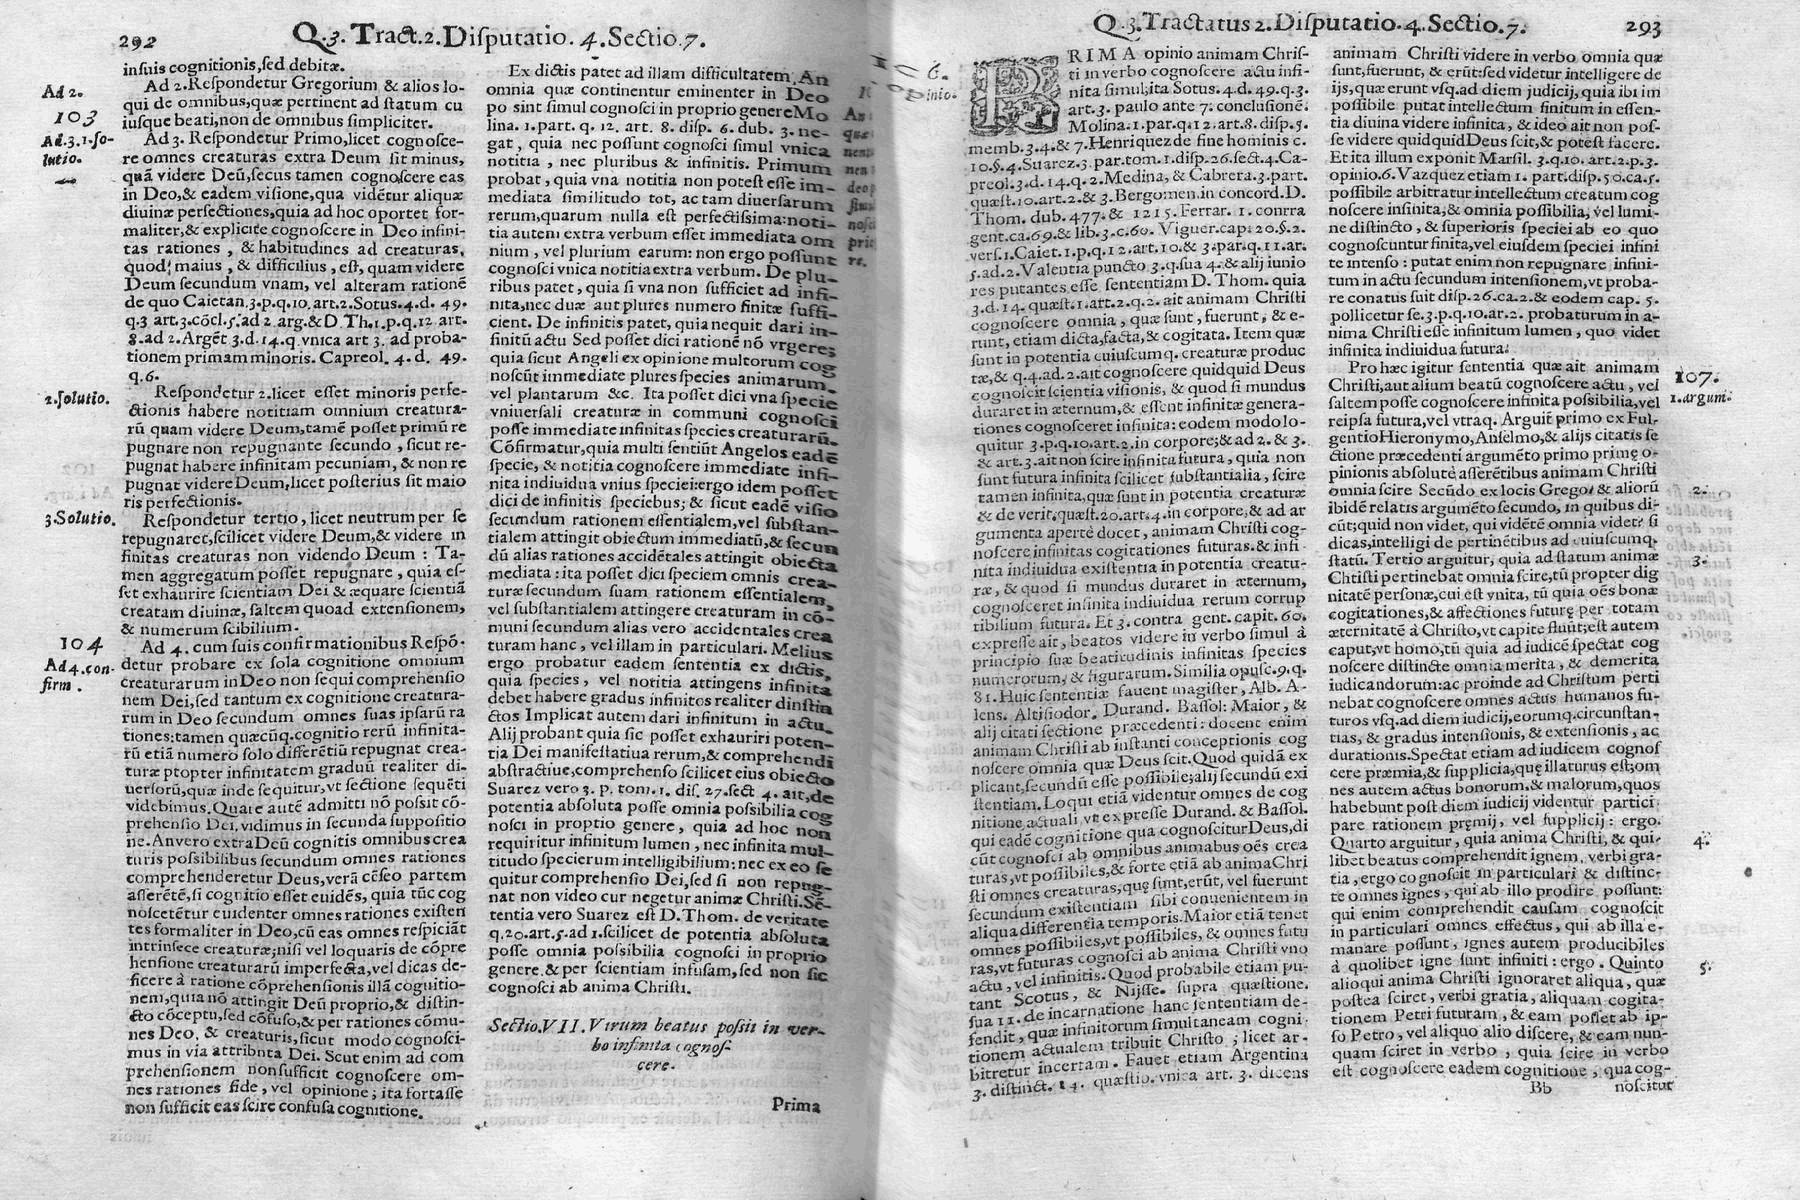 292
Q.3. Tract.2.Disputatio. 4.Sectio.7.
insuis cognitionis,sed debitæ.
Ad 2.
Ad 2.Respondetur Gregorium & alios lo-
qui de omnibus,quæ pertinent ad statum cu
iusque beati,non de omnibus simpliciter.
103
Ad.3.1.so-
lutio.
Ad 3. Respondetur Primo,licet cognosce-
re omnes creaturas extra Deum sit minus,
quã videre Deũ,secus tamen cognoscere eas
in Deo,& eadem visione,qua vidẽtur aliquæ
diuinæ perfectiones,quia ad hoc oportet for-
maliter,& explicite cognoscere in Deo infini-
tas rationes , & habitudines ad creaturas,
quod maius , & difficilius , est, quam videre
Deum secundum vnam, vel alteram rationẽ
de quo Caietan.3.p.q.10.art.2.Sotus.4.d. 49.
q.3 art.3.cõcl.5.ad 2 arg.& D Th.1.p.q.12 art.
8.ad 2.Argẽt 3.d.14.q vnica art 3. ad proba-
tionem primam minoris. Capreol. 4. d. 49.
q.6.
2.solutio.
Respondetur 2.licet esset minoris perfe-
ctionis habere notitiam omnium creatura-
rũ quam videre Deum,tamẽ posset primũ re
pugnare non repugnante secundo , sicut re-
pugnat habere infinitam pecuniam, & non re
pugnat videre Deum,licet posterius sit maio
ris perfectionis.
3.Solutio.
Respondetur tertio, licet neutrum per se
repugnaret,scilicet videre Deum,& videre in
finitas creaturas non videndo Deum : Ta-
men aggregatum posset repugnare , quia es-
set exhaurire scientiam Dei & æquare scientiã
creatam diuinæ, saltem quoad extensionem,
& numerum scibilium.
104
Ad 4.con-
firm .
Ad 4. cum suis confirmationibus Respõ-
detur probare ex sola cognitione omnium
creaturarum in Deo non sequi comprehensio
nem Dei,sed tantum ex cognitione creatura-
rum in Deo secundum omnes suas ipsarũ ra
tiones:tamen quæcũq.cognitio rerũ infinita-
rũ etiã numero solo differẽtiũ repugnat crea-
turæ ptopter infinitatem graduũ realiter di-
uersorũ,quæ inde sequitur,vt sectione sequẽti
videbimus.Quare autẽ admitti nõ possit cõ-
prehensio Dei,vidimus in secunda suppositio
ne.An vero extra Deũ cognitis omnibus crea
turis possibilibus secundum omnes rationes
comprehenderetur Deus,verã cẽseo partem
asserẽtẽ,si cognitio esset euidẽs, quia tũc cog
noscetẽtur euidenter omnes rationes existen
tes formaliter in Deo,cũ eas omnes respiciãt
intrinsece creaturæ;nisi vel loquaris de cõpre
hensione creaturarũ imperfecta,vel dicas de-
ficere à ratione cõprehensionis illã cognitio-
nem,quia nõ attingit Deũ proprio,& distin-
cto cõceptu,sed cõfuso,& per rationes cõmu-
nes Deo, & creaturis,sicut modo cognosci-
mus in via attributa Dei. Scut enim ad com
prehensionem non sufficit cognoscere om-
nes rationes fide, vel opinione ; ita fortasse
non sufficit eas scire confusa cognitione.
Ex dictis patet ad illam difficultatem, An
omnia quæ continentur eminenter in Deo
po sint simul cognosci in proprio genere Mo
lina. 1. part. q. 12. art. 8. disp. 6. dub. 3. ne-
gat , quia nec possunt cognosci simul vnica
notitia , nec pluribus & infinitis. Primum
probat , quia vna notitia non potest esse im-
mediata similitudo tot, ac tam diuersarum
rerum,quarum nulla est perfectissima:noti-
tia autem extra verbum esset immediata om
nium , vel plurium earum: non ergo possunt
cognosci vnica notitia extra verbum. De plu-
ribus patet , quia si vna non sufficiet ad infi-
nita,nec duæ aut plures numero finitæ suffi-
cient. De infinitis patet, quia nequit dari in-
finitũ actu Sed posset dici rationẽ nõ vrgere;
quia sicut Angeli ex opinione multorum cog
noscũt immediate plures species animarum,
vel plantarum &c. Ita posset dici vna specie
vniuersali creaturæ in communi cognosci
posse immediate infinitas species creaturarũ.
Cõfirmatur,quia multi sentiũt Angelos eadẽ
specie, & notitia cognoscere immediate infi-
nita indiuidua vnius speciei:ergo idem posset
dici de infinitis speciebus; & sicut eadẽ visio
secundum rationem essentialem,vel substan-
tialem attingit obiectum immediatũ,& secun
dũ alias rationes accidẽtales attingit obiecta
mediata : ita posset dici speciem omnis crea-
turæ secundum suam rationem essentialem,
vel substantialem attingere creaturam in cõ-
muni secundum alias vero accidentales crea
turam hanc , vel illam in particulari. Melius
ergo probatur eadem sententia ex dictis,
quia species , vel notitia attingens infinita
debet habere gradus infinitos realiter distin
ctos Implicat autem dari infinitum in actu.
Alij probant quia sic posset exhauriri poten-
tia Dei manifestatiua rerum,& comprehendi
abstractiue,comprehenso scilicet eius obiecto
Suarez vero 3. p. tom. 1. dis. 27. sect 4. ait, de
potentia absoluta posse omnia possibilia cog
nosci in proptio genere , quia ad hoc non
requiritur infinitum lumen , nec infinita mul-
titudo specierum intelligibilium: nec ex eo se
quitur comprehensio Dei,sed si non repug-
nat non video cur negetur animæ Christi.Sẽ-
tentia vero Suarez est D.Thom. de veritate
q.20.art.5.ad 1.scilicet de potentia absoluta
posse omnia possibilia cognosci in proprio
genere & per scientiam infusam,sed non sic
cognosci ab anima Christi.
Sectio.VII.Vtrum beatus possit in ver-
bo infinita cognos-
cere.
Prima
Q.3.Tractatus 2.Disputatio.4.Sectio.7.
293
PRIMA opinio animam Chris-
ti in verbo cognoscere actu infi-
nita simul,ita Sotus. 4.d. 49.q.3.
art.3. paulo ante 7. conclusionẽ.
Molina.1.par.q.12.art.8.disp.5.
memb.3.4.& 7.Henriquez de fine hominis c.
10.§.4.Suarez.3 par.tom.1.disp.26.sect.4.Ca-
preol.3.d.14.q.2.Medina,& Cabrera.3.part.
quæst.10.art.2.& 3.Bergomen.in concord.D.
Thom. dub. 477.& 1215.Ferrar. 1. contra
gent.ca.69.& lib.3.c.60. Viguer.cap.20.§.2.
vers.1.Caiet.1.p.q.12.art.10.& 3.par.q.11.ar.
5.ad.2.Valentia puncto 3.q.sua 4.& alij iunio
res putantes esse sententiam D. Thom. quia
3.d.14.quæst.1.art.2.q.2. ait animam Christi
cognoscere omnia , quæ sunt , fuerunt, & e-
runt, etiam dicta,facta,& cogitata. Item quæ
sunt in potentia cuiuscumq. creaturæ produc
tæ,& q.4.ad.2.ait cognoscere quidquid Deus
cognoscit scientia visionis, & quod si mundus
duraret in æternum,& essent infinitæ genera-
tiones cognosceret infinita: eodem modo lo-
quitur 3.p.q.10.art.2.in corpore;& ad 2.& 3.
& art.3.ait non scire infinita futura, quia non
sunt futura infinita scilicet substantialia , scire
tamen infinita,quæ sunt in potentia creaturæ
& de verit.quæst.20.art.4.in corpore,& ad ar
gumenta apertè docet , animam Christi cog-
noscere infinitas cogitationes futuras.& infi-
nita indiuidua existentia in potentia creatu-
ræ , & quod si mundus duraret in æternum,
cognosceret infinita indiuidua rerum corrup
tibilium futura. Et 3. contra gent. capit. 60.
expresse ait , beatos videre in verbo simul à
principio suæ beatitudinis infinitas species
numerorum, & figurarum.Similia opusc.9.q.
81. Huic sententiæ fauent magister, Alb. A-
lens. Altisiodor. Durand. Bassol: Maior , &
alij citati sectione præcedenti : docent enim
animam Christi ab instanti conceptionis cog
noscere omnia quæ Deus scit.Quod quidã ex
plicant,secundũ esse possibile;alij secundũ exi
stentiam.Loqui etiã videntur omnes de cog
nitione actuali vt expresse Durand. & Bassol.
qui eadẽ cognitione qua cognoscitur Deus,di
cũt cognosci ab omnibus animabus oẽs crea
turas,vt possibiles,& forte etiã ab anima Chri
sti omnes creaturas,quę sunt,erũt, vel fuerunt
secundum existentiam sibi conuenientem in
aliqua differẽtia temporis.Maior etiã tenet
omnes possibiles,vt possibiles, & omnes futu
ras,vt futuras cognosci ab anima Christi vno
actu , vel infinitis. Quod probabile etiam pu-
tant Scotus , & Nijsse. supra quæstione.
sua 11. de incarnatione hanc sententiam de-
fendit , quæ infinitorum simultaneam cogni-
tionem actualem tribuit Christo ; licet ar-
bitretur incertam. Fauet etiam Argentina
3. distinct. 14. quæstio. vnica art. 3. dicens
animam Christi videre in verbo omnia quæ
sunt,fuerunt, & erũt:sed videtur intelligere de
ijs,quæ erunt vsq.ad diem judicij, quia ibi im
possibile putat intellectum finitum in essen-
tia diuina videre infinita, & ideo ait non pos-
se videre quidquid Deus scit,& potest facere.
Et ita illum exponit Marsil. 3.q.10. art.2.p.3.
opinio.6.Vazquez etiam 1. part.disp.50.ca.5.
possibile arbitratur intellectum creatum cog
noscere infinita,& omnia possibilia, vel lumi-
ne distincto , & superioris speciei ab eo quo
cognoscuntur finita,vel eiusdem speciei infini
te intenso : putat enim non repugnare infini-
tum in actu secundum intensionem,vt proba-
re conatus fuit disp.26.ca.2.& eodem cap. 5.
pollicetur se.3.p.q.10.ar.2. probaturum in a-
nima Christi esse infinitum lumen , quo videt
infinita indiuidua futura.
107.
1.argum.
Pro hæc igitur sententia quæ ait animam
Christi,aut alium beatũ cognoscere actu , vel
saltem posse cognoscere infinita possibilia,vel
reipsa futura,vel vtraq. Arguit primo ex Ful-
gentio Hieronymo,Anselmo,& alijs citatis se
ctione præcedenti argumẽto primo prime o-
pinionis absolutè asserẽtibus animam Christi
2.
omnia scire Secũdo ex locis Grego. & aliorũ
ibidẽ relatis argumẽto secundo, in quibus di-
cũt;quid non videt, qui vidẽtẽ omnia videt? si
dicas,intelligi de pertinẽtibus ad cuiuscumq.
3.
statũ. Tertio arguitur, quia ad statum animæ
Christi pertinebat omnia scire,tũ propter dig
nitatẽ personæ,cui est vnita, tũ quia oẽs bonæ
cogitationes,& affectiones futurę per totam
æternitatẽ à Christo,vt capite fluũt;est autem
caput,vt homo,tũ quia ad iudicẽ spectat cog
noscere distincte omnia merita , & demerita
iudicandorum:ac proinde ad Christum perti
nebat cognoscere omnes actus humanos fu-
turos vsq.ad diem iudicij,eorumq.circunstan-
tias, & gradus intensionis, & extensionis , ac
durationis.Spectat etiam ad iudicem cognos
cere præmia,& supplicia,quę illaturus est;om
nes autem actus bonorum,& malorum,quos
habebunt post diem iudicij videntur partici-
pare rationem pręmij, vel supplicij : ergo.
4.
Quarto arguitur , quia anima Christi, & qui-
libet beatus comprehendit ignem, verbi gra-
tia , ergo cognoscit in particulari & distinc-
te omnes ignes , qui ab illo prodire possunt:
qui enim comprehendit causam cognoscit
in particulari omnes effectus, qui ab illa e-
manare possunt , ignes autem producibiles
5.
à quolibet igne sunt infiniti : ergo . Quinto
alioqui anima Christi ignoraret aliqua , quæ
postea sciret , verbi gratia , aliquam cogita-
tionem Petri futuram , & eam posset ab ip-
so Petro , vel aliquo alio discere, & eam nun-
quam sciret in verbo , quia scire in verbo
est cognoscere eadem cognitione , qua cog-
Bb
noscitur